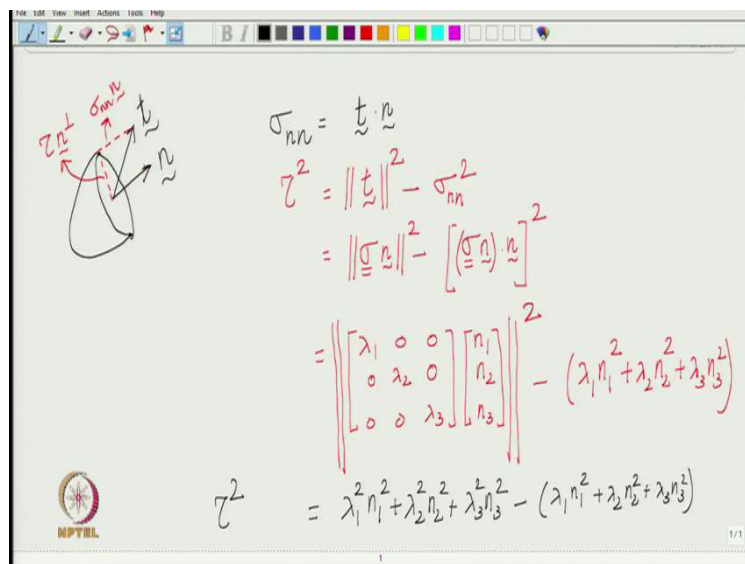 File Edit View Insert Actions Tools Help
B I
σ_nn n
τ n^⊥
t
n
σ_nn = t · n
τ^2 = ||t||^2 - σ_nn^2
= ||σ n||^2 - [(σ n) · n]^2
= ||[λ_1 0 0; 0 λ_2 0; 0 0 λ_3] [n_1; n_2; n_3]||^2 - (λ_1 n_1^2 + λ_2 n_2^2 + λ_3 n_3^2)
τ^2 = λ_1^2 n_1^2 + λ_2^2 n_2^2 + λ_3^2 n_3^2 - (λ_1 n_1^2 + λ_2 n_2^2 + λ_3 n_3^2)
NPTEL
1/1
1